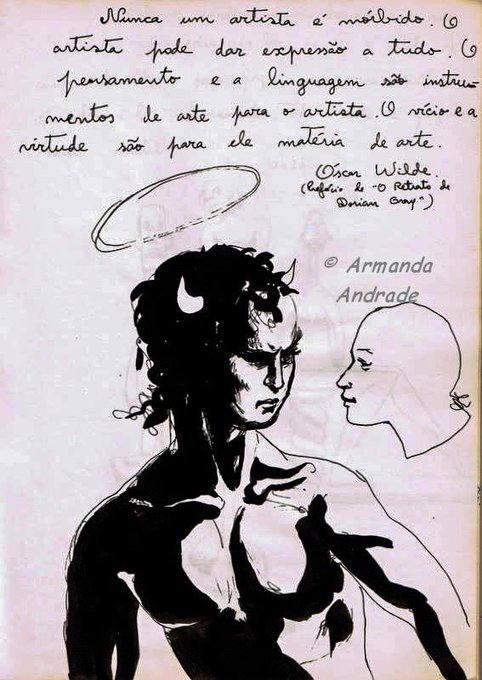 Nunca um artista é mórbido. O
artista pode dar expressão a tudo. O
pensamento e a linguagem são instru-
mentos de arte para o artista. O vício e a
virtude são para ele matéria de arte.
Óscar Wilde.
(Prefácio de "O Retrato de
Dorian Gray")
© Armanda
Andrade